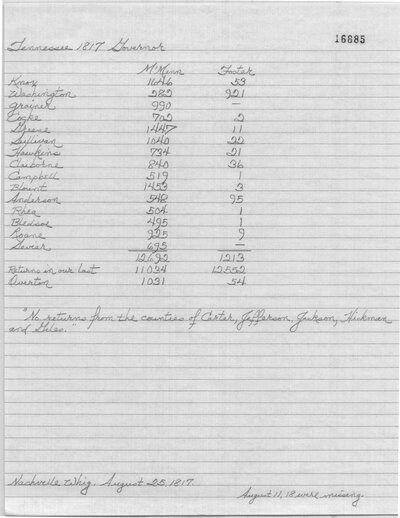 16685
Tennessee 1817 Governor
M'Minn Foster
Knox 1646 53
Washington 282 921
Grainer 990 —
Cocke 702 2
Greene 1447 11
Sullivan 1040 22
Hawkins 734 21
Claiborne 840 36
Campbell 519 1
Blount 1453 3
Anderson 548 95
Rhea 504 1
Bledsoe 495 1
Roane 925 9
Sevier 695 —
12692 1213
Returns in our last 11034 12552
Overton 1031 54
"No returns from the counties of Carter, Jefferson, Jackson, Hickman
and Giles."
Nashville Whig. August 25, 1817.
August 11, 18 were missing.